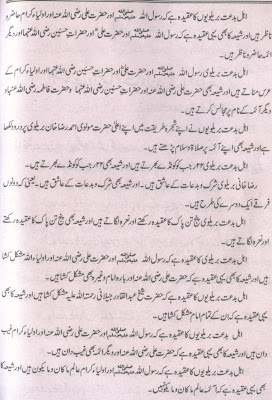 اہل بدعت بریلویوں کا عقیدہ ہے کہ رسول اللہ ﷺ اور حضرت علی رضی اللہ عنہ اور اولیاء کرام حاضر و
ناظر ہیں اور شیعہ کا بھی یہی عقیدہ ہے کہ رسول اللہ ﷺ اور حضرت علی اور حضرات حسنین رضی اللہ عنہما اور دیگر
ائمہ حاضر و ناظر ہیں۔
اہل بدعت بریلوی رسول اللہ ﷺ اور حضرت علی اور حضرات حسنین رضی اللہ عنہما اور اولیاء کرام کے
عرس مناتے ہیں اور شیعہ بھی حضرت علی رضی اللہ عنہ اور حضرات حسنین رضی اللہ عنہما و حضرت فاطمہ رضی اللہ عنہا و
دیگر ائمہ کے نام پر مجالس کرتے ہیں۔
اہل بدعت بریلویوں نے اپنے شجرہ طریقت میں اپنے اعلیٰ حضرت مولوی احمد رضا خان بریلوی پر درود لکھا
ہے اور شیعہ بھی اپنے ائمہ پر صلاۃ و سلام پڑھتے ہیں۔
اہل بدعت بریلوی ۲۲ رجب کو کونڈے بھرتے ہیں اور شیعہ بھی ۲۲ رجب کو کونڈے بھرتے ہیں۔
رضا خانی بریلوی شرک و بدعات کے عاشق ہیں۔ اور شیعہ بھی شرک و بدعات کے عاشق ہیں۔ یعنی کہ دونوں
فرقے ایک دوسرے کی طرح ہیں۔
اہل بدعت بریلوی پنج تن پاک کا عقیدہ رکھتے اور نعرہ لگاتے ہیں اور شیعہ بھی پنج تن پاک کا عقیدہ رکھتے
اور نعرہ لگاتے ہیں۔
اہل بدعت بریلویوں کا عقیدہ ہے کہ رسول اللہ ﷺ اور حضرت علی رضی اللہ عنہ اور اولیاء کرام مشکل کشا
ہیں اور شیعہ کا بھی یہی عقیدہ ہے کہ حضرت علی رضی اللہ عنہ اور بارہ امام وغیرہ بھی مشکل کشا ہیں۔
اہل بدعت بریلویوں کا عقیدہ ہے کہ حضرت شیخ عبدالقادر جیلانی رحمۃ اللہ علیہ مشکل کشا ہیں اور شیعہ کا بھی
یہی عقیدہ ہے کہ ان کے تمام امام مشکل کشا ہیں۔
اہل بدعت بریلویوں کا عقیدہ ہے کہ رسول اللہ ﷺ اور حضرت علی رضی اللہ عنہ اور اولیاء کرام غیب
دان ہیں اور شیعہ کا بھی یہی عقیدہ ہے کہ حضرت علی رضی اللہ عنہ اور دیگر ائمہ بھی غیب دان ہیں۔
اہل بدعت بریلویوں کا عقیدہ ہے کہ رسول اللہ ﷺ اور اولیاء کرام عالم ماکان و مایکون ہیں اور شیعہ کا
بھی یہی عقیدہ ہے کہ ائمہ عالم ماکان و مایکون ہیں۔